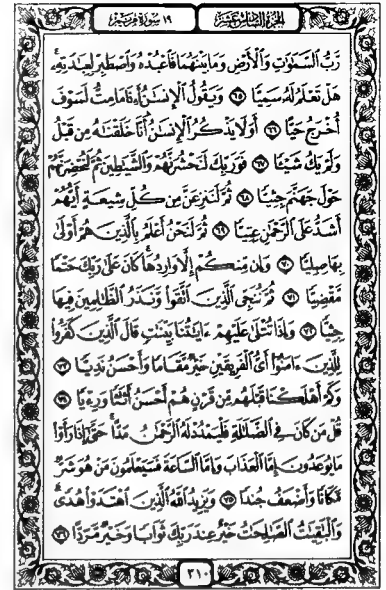 الجزء السادس عشر
١٩ سورة مريم
رَبُّ السَّمَٰوَٰتِ وَالْأَرْضِ وَمَا بَيْنَهُمَا فَاعْبُدْهُ وَاصْطَبِرْ لِعِبَٰدَتِهِۦ ۚ
هَلْ تَعْلَمُ لَهُۥ سَمِيًّا ۝٦٥ وَيَقُولُ الْإِنسَٰنُ أَءِذَا مَا مِتُّ لَسَوْفَ
أُخْرَجُ حَيًّا ۝٦٦ أَوَلَا يَذْكُرُ الْإِنسَٰنُ أَنَّا خَلَقْنَٰهُ مِن قَبْلُ
وَلَمْ يَكُ شَيْـًٔا ۝٦٧ فَوَرَبِّكَ لَنَحْشُرَنَّهُمْ وَالشَّيَٰطِينَ ثُمَّ لَنُحْضِرَنَّهُمْ
حَوْلَ جَهَنَّمَ جِثِيًّا ۝٦٨ ثُمَّ لَنَنزِعَنَّ مِن كُلِّ شِيعَةٍ أَيُّهُمْ
أَشَدُّ عَلَى الرَّحْمَٰنِ عِتِيًّا ۝٦٩ ثُمَّ لَنَحْنُ أَعْلَمُ بِالَّذِينَ هُمْ أَوْلَىٰ
بِهَا صِلِيًّا ۝٧٠ وَإِن مِّنكُمْ إِلَّا وَارِدُهَا ۚ كَانَ عَلَىٰ رَبِّكَ حَتْمًا
مَّقْضِيًّا ۝٧١ ثُمَّ نُنَجِّي الَّذِينَ اتَّقَوا وَّنَذَرُ الظَّٰلِمِينَ فِيهَا
جِثِيًّا ۝٧٢ وَإِذَا تُتْلَىٰ عَلَيْهِمْ ءَايَٰتُنَا بَيِّنَٰتٍ قَالَ الَّذِينَ كَفَرُوا
لِلَّذِينَ ءَامَنُوٓا أَيُّ الْفَرِيقَيْنِ خَيْرٌ مَّقَامًا وَأَحْسَنُ نَدِيًّا ۝٧٣
وَكَمْ أَهْلَكْنَا قَبْلَهُم مِّن قَرْنٍ هُمْ أَحْسَنُ أَثَٰثًا وَرِءْيًا ۝٧٤
قُلْ مَن كَانَ فِي الضَّلَٰلَةِ فَلْيَمْدُدْ لَهُ الرَّحْمَٰنُ مَدًّا ۚ حَتَّىٰٓ إِذَا رَأَوْا
مَا يُوعَدُونَ إِمَّا الْعَذَابَ وَإِمَّا السَّاعَةَ فَسَيَعْلَمُونَ مَنْ هُوَ شَرٌّ
مَّكَانًا وَأَضْعَفُ جُندًا ۝٧٥ وَيَزِيدُ اللَّهُ الَّذِينَ اهْتَدَوْا هُدًى ۗ
وَالْبَٰقِيَٰتُ الصَّٰلِحَٰتُ خَيْرٌ عِندَ رَبِّكَ ثَوَابًا وَخَيْرٌ مَّرَدًّا ۝٧٦
٣١٠